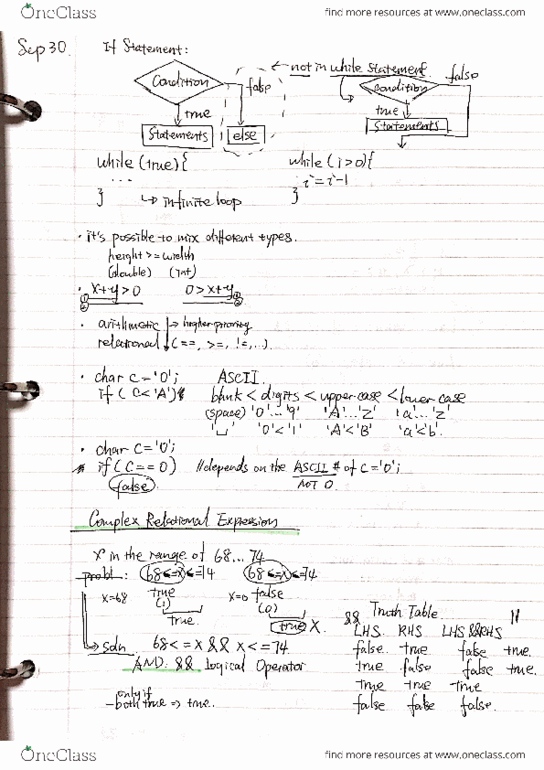 OneClass
find more resources at www.oneclass.com
Sep 30.
If Statement:
not in while statement.
Condition
false
true
Statements
else
Condition
false
true
Statements
while (true) {
...
} ↳ infinite loop
while (i>0) {
i = i-1
}
· it's possible to mix different types.
height >= width
(double) (int)
· x+y > 0    0 > x+y
① ②
① ②
· arithmetic → higher priority
relational (==, >=, !=, ...)
· char c = '0';    ASCII
if (c < 'A')    blank < digits < upper case < lower case
(space) '0'...'9' 'A'...'Z' 'a'...'z'
'␣' '0'<'1' 'A'<'B' 'a'<'b'.
· char c = '0';
if (c == 0) //depends on the ASCII # of c = '0';
false    NOT 0
Complex Relational Expression
x in the range of 68...74
probl: 68<=x<=74    68<=x<=74
x=68 true x=0 false
(1) (0)
true. true X.
soln: 68 <= x && x <= 74.
AND: && Logical Operator
only if
– both true => true.
&& Truth Table ||
LHS RHS LHS&&RHS
false. true false true.
true false false true.
true true true
false false false.
OneClass
find more resources at www.oneclass.com